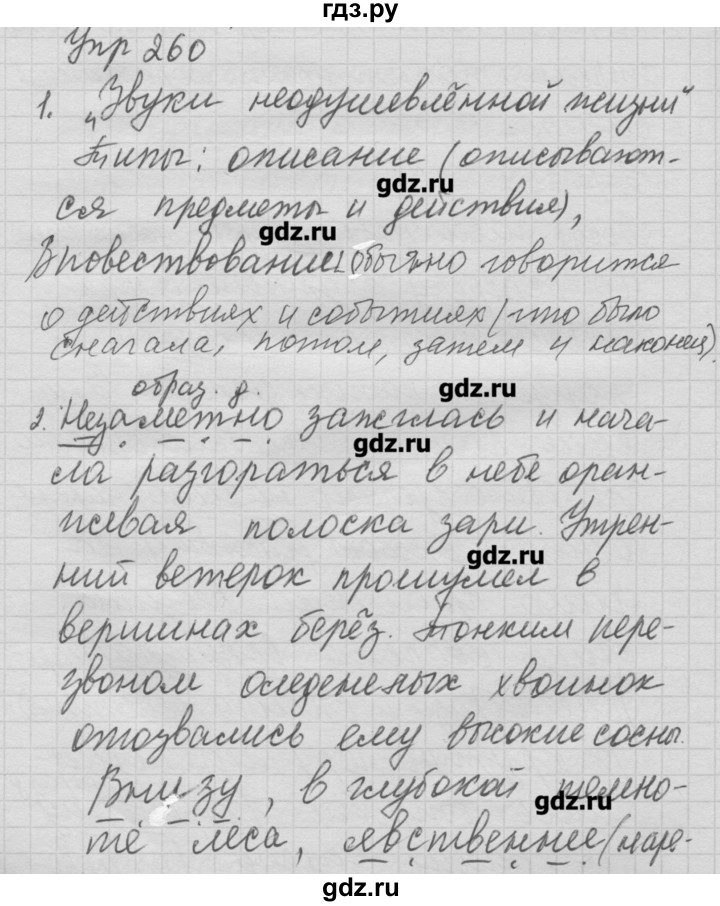 гдз.ру
Упр 260
1. „Звуки неодушевлённой жизни"
Типы: описание (описывают-
gdz.ru
ся предметы и действия),
gdz.ru
В повествовании обычно говорится
о действиях и событиях (что было
сначала, потом, затем и наконец).
gdz.ru
образ. д.
2. Незаметно зажглась и нача-
gdz.ru
ла разгораться в небе оран-
жевая полоска зари. Утрен-
gdz.ru
ний ветерок прошумел в
вершинах берёз. Тонким пере-
звоном оледенелых хвоинок
отозвались ему высокие сосны.
Внизу, в глубокой темно-
gdz.ru
те леса, явственнее (наре-
gdz.ru